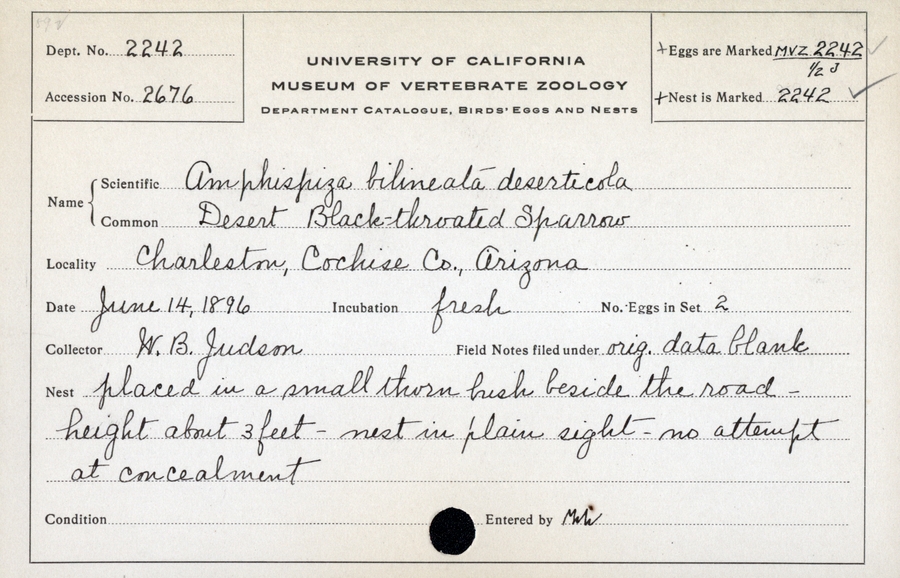 Dept. No. 2242
Accession No. 2676
UNIVERSITY OF CALIFORNIA
MUSEUM OF VERTEBRATE ZOOLOGY
DEPARTMENT CATALOGUE, BIRDS' EGGS AND NESTS
+Eggs are Marked MVZ 2242
1/2 J
+Nest is Marked 2242
Name
Scientific Amphispiza bilineata deserticola
Common Desert Black-throated Sparrow
Locality Charleston, Cochise Co., Arizona
Date June 14, 1896 Incubation fresh No. Eggs in Set 2
Collector W. B. Judson Field Notes filed under orig. data blank
Nest placed in a small thorn bush beside the road -
height about 3 feet - nest in plain sight - no attempt
at concealment
Condition Entered by